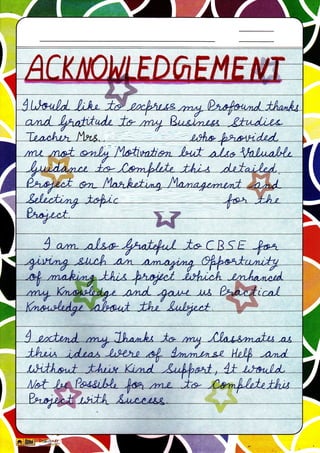 ACKNOWLEDGEMENT
I Would like to express my Profound thanks
and Gratitude to my Business Studies
Teacher Mrs. who provided
me not only Motivation but also Valuable
Guidance to Complete this detailed
Project on Marketing Management and
Selecting topic for the
Project.
I am also Grateful to CBSE for
giving such an amazing Opportunity
of making this project which enhanced
my Knowledge and gave us Practical
Knowledge about the Subject
I extend my Thanks to my Classmates as
their ideas were of Immense Help and
without their Kind Support, It would
Not be Possible for me to Complete this
Project with Success.